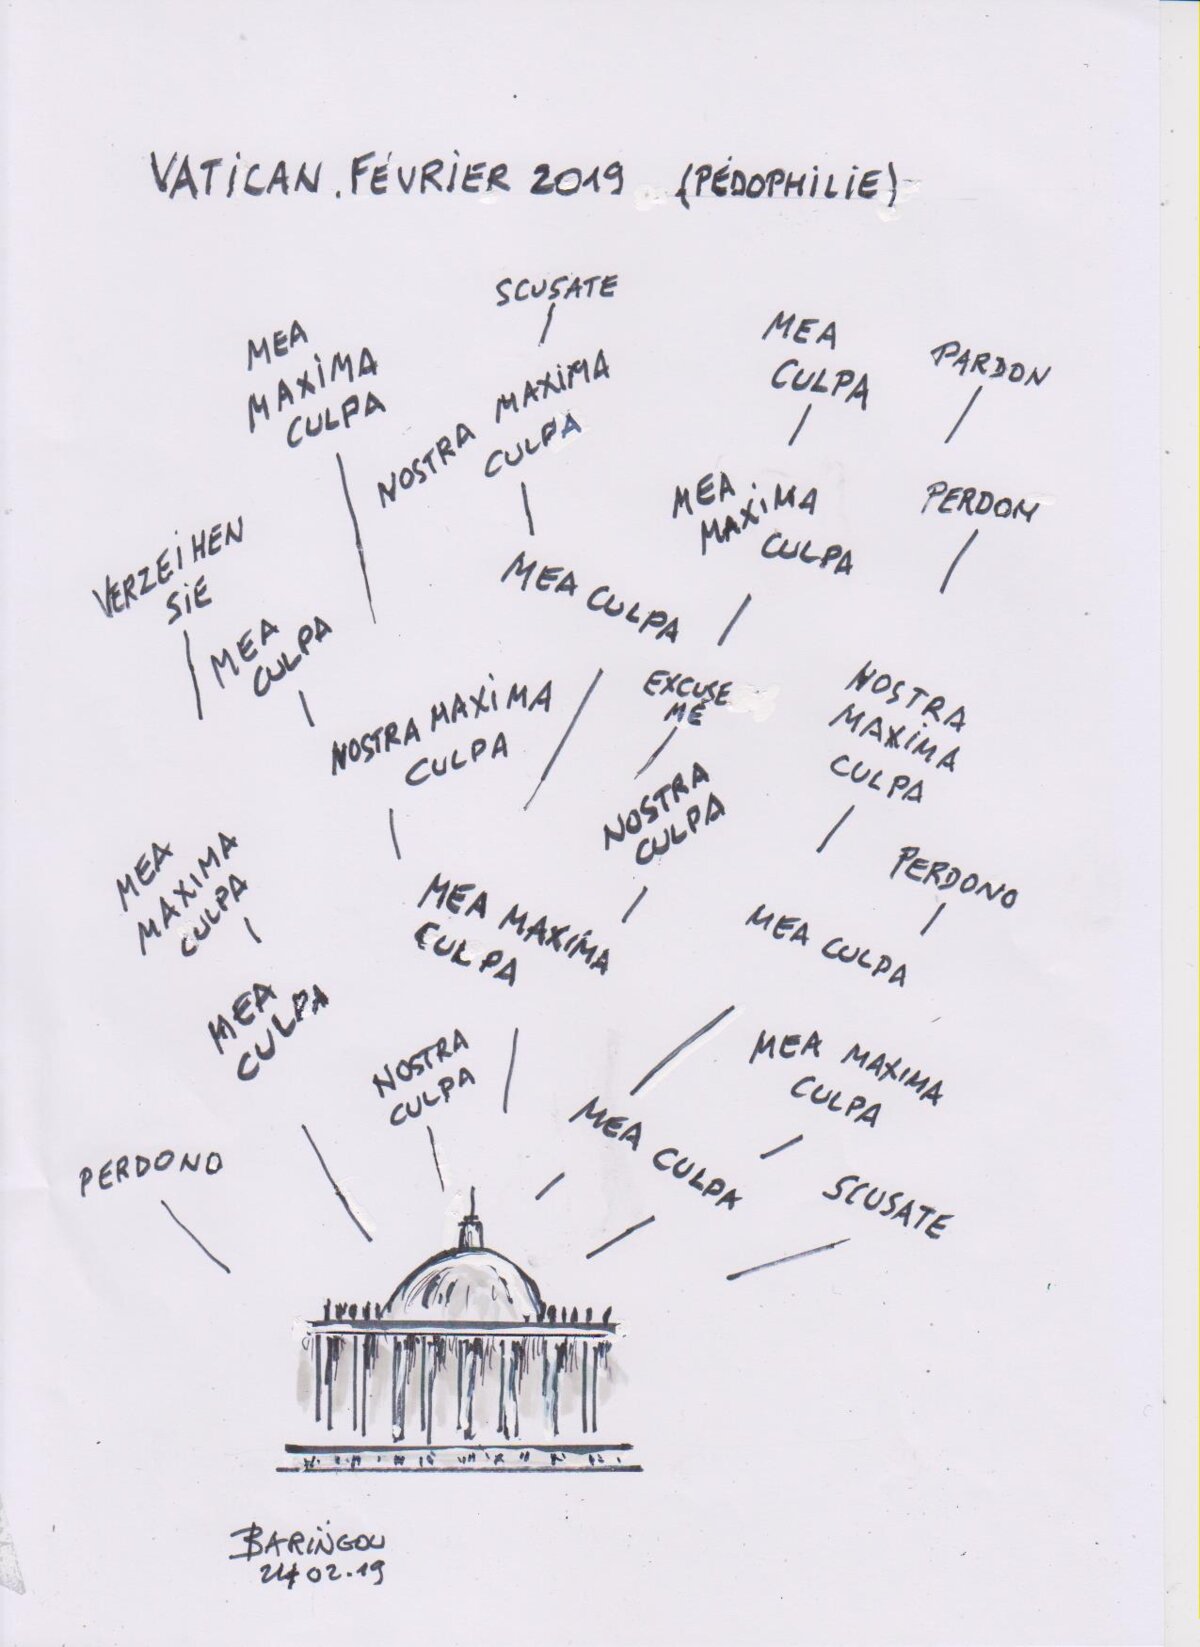 VATICAN. FÉVRIER 2019 (PÉDOPHILIE)
SCUSATE
MEA
MAXIMA
CULPA
NOSTRA MAXIMA
CULPA
MEA
CULPA
PARDON
MEA
MAXIMA
CULPA
PERDON
VERZEIHEN
SIE
MEA
CULPA
MEA CULPA
EXCUSE
ME
NOSTRA MAXIMA
CULPA
NOSTRA
MAXIMA
CULPA
NOSTRA
CULPA
MEA
MAXIMA
CULPA
MEA MAXIMA
CULPA
PERDONO
MEA CULPA
MEA
CULPA
NOSTRA
CULPA
MEA MAXIMA
CULPA
MEA CULPA
PERDONO
SCUSATE
BARINGOU
24 02.19